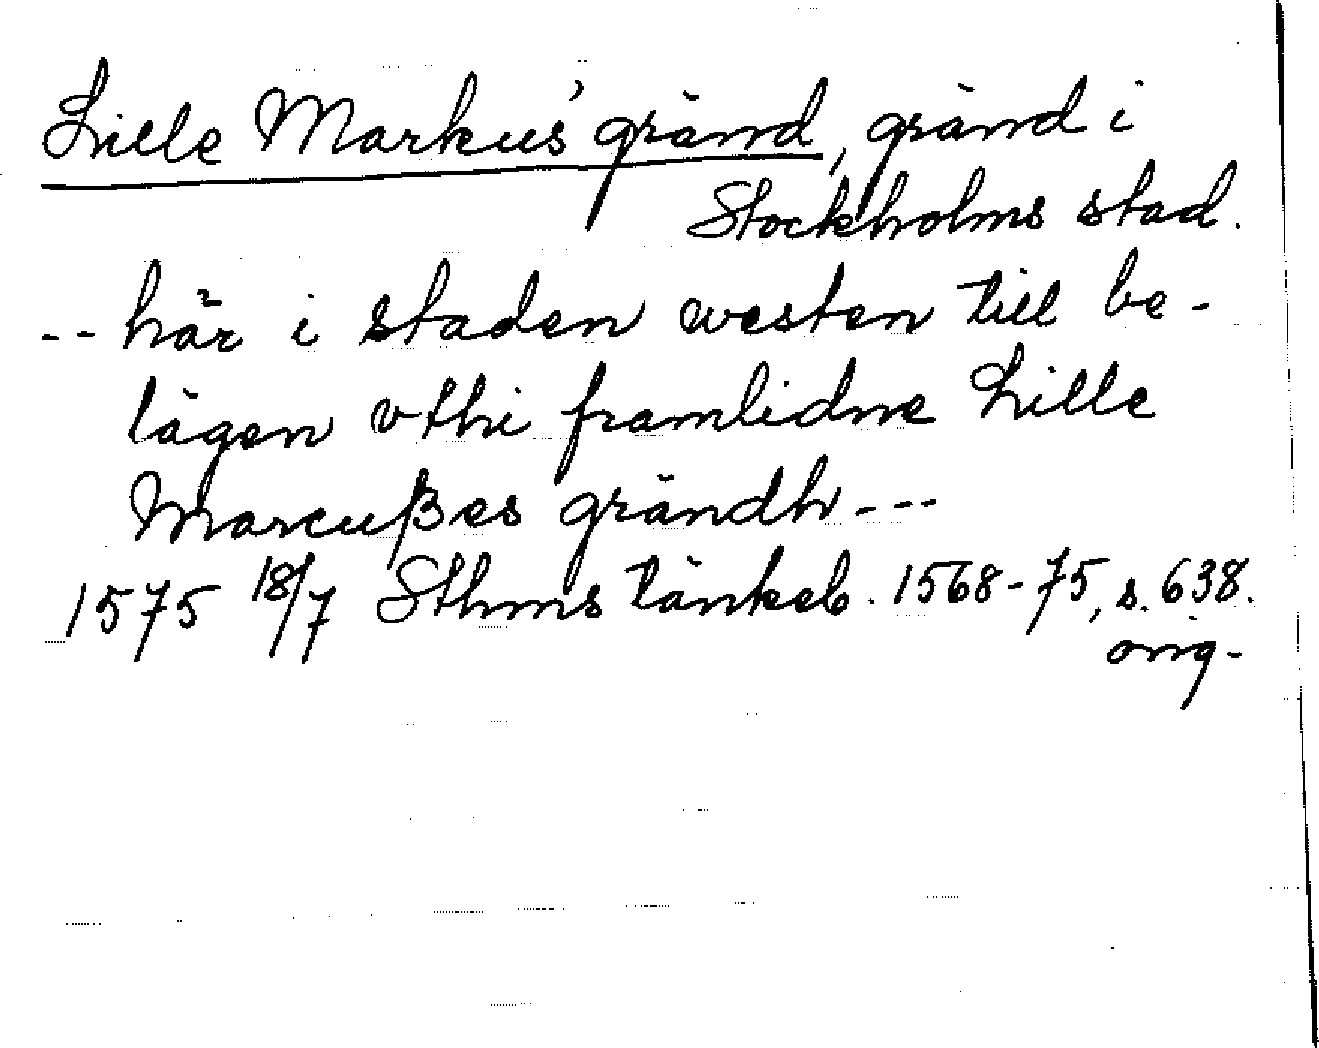 Lille Markus' gränd, gränd i
Stockholms stad.
-- här i staden westen till be-
lägen vthi framlidne Lille
Marcußes grändh ---
1575 18/7 Sthms tänkeb. 1568-75, s. 638.
orig-